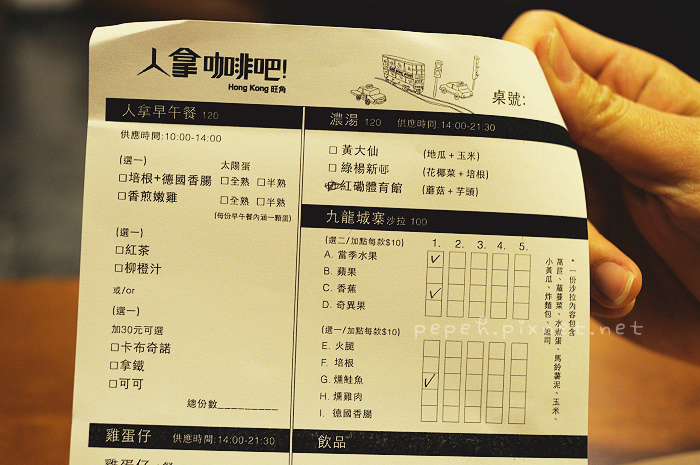 人拿咖啡吧!
Hong Kong 旺角
桌號:
人拿早午餐 120
供應時間:10:00-14:00
(選一) 太陽蛋
□培根+德國香腸 □全熟 □半熟
□香煎嫩雞 □全熟 □半熟
(每份早午餐內涵一顆蛋)
(選一)
□紅茶
□柳橙汁
或/or
(選一)
加30元可選
□卡布奇諾
□拿鐵
□可可
總份數
雞蛋仔 供應時間:14:00-21:30
濃湯 120 供應時間:14:00-21:30
□黃大仙 (地瓜+玉米)
□綠楊新邨 (花椰菜+培根)
紅磡體育館 (蘑菇+芋頭)
九龍城寨沙拉 100
(選二/加點每款$10) 1. 2. 3. 4. 5.
A. 當季水果
B. 蘋果
C. 香蕉
D. 奇異果
(選一/加點每款$10)
E. 火腿
F. 培根
G. 燻鮭魚
H. 燻雞肉
I. 德國香腸
*一份沙拉內容包含
萵苣、蘿蔓菜、水煮蛋、馬鈴薯泥、玉米、
小黃瓜、炸麵包、起司
飲品
pepek.pixnet.net